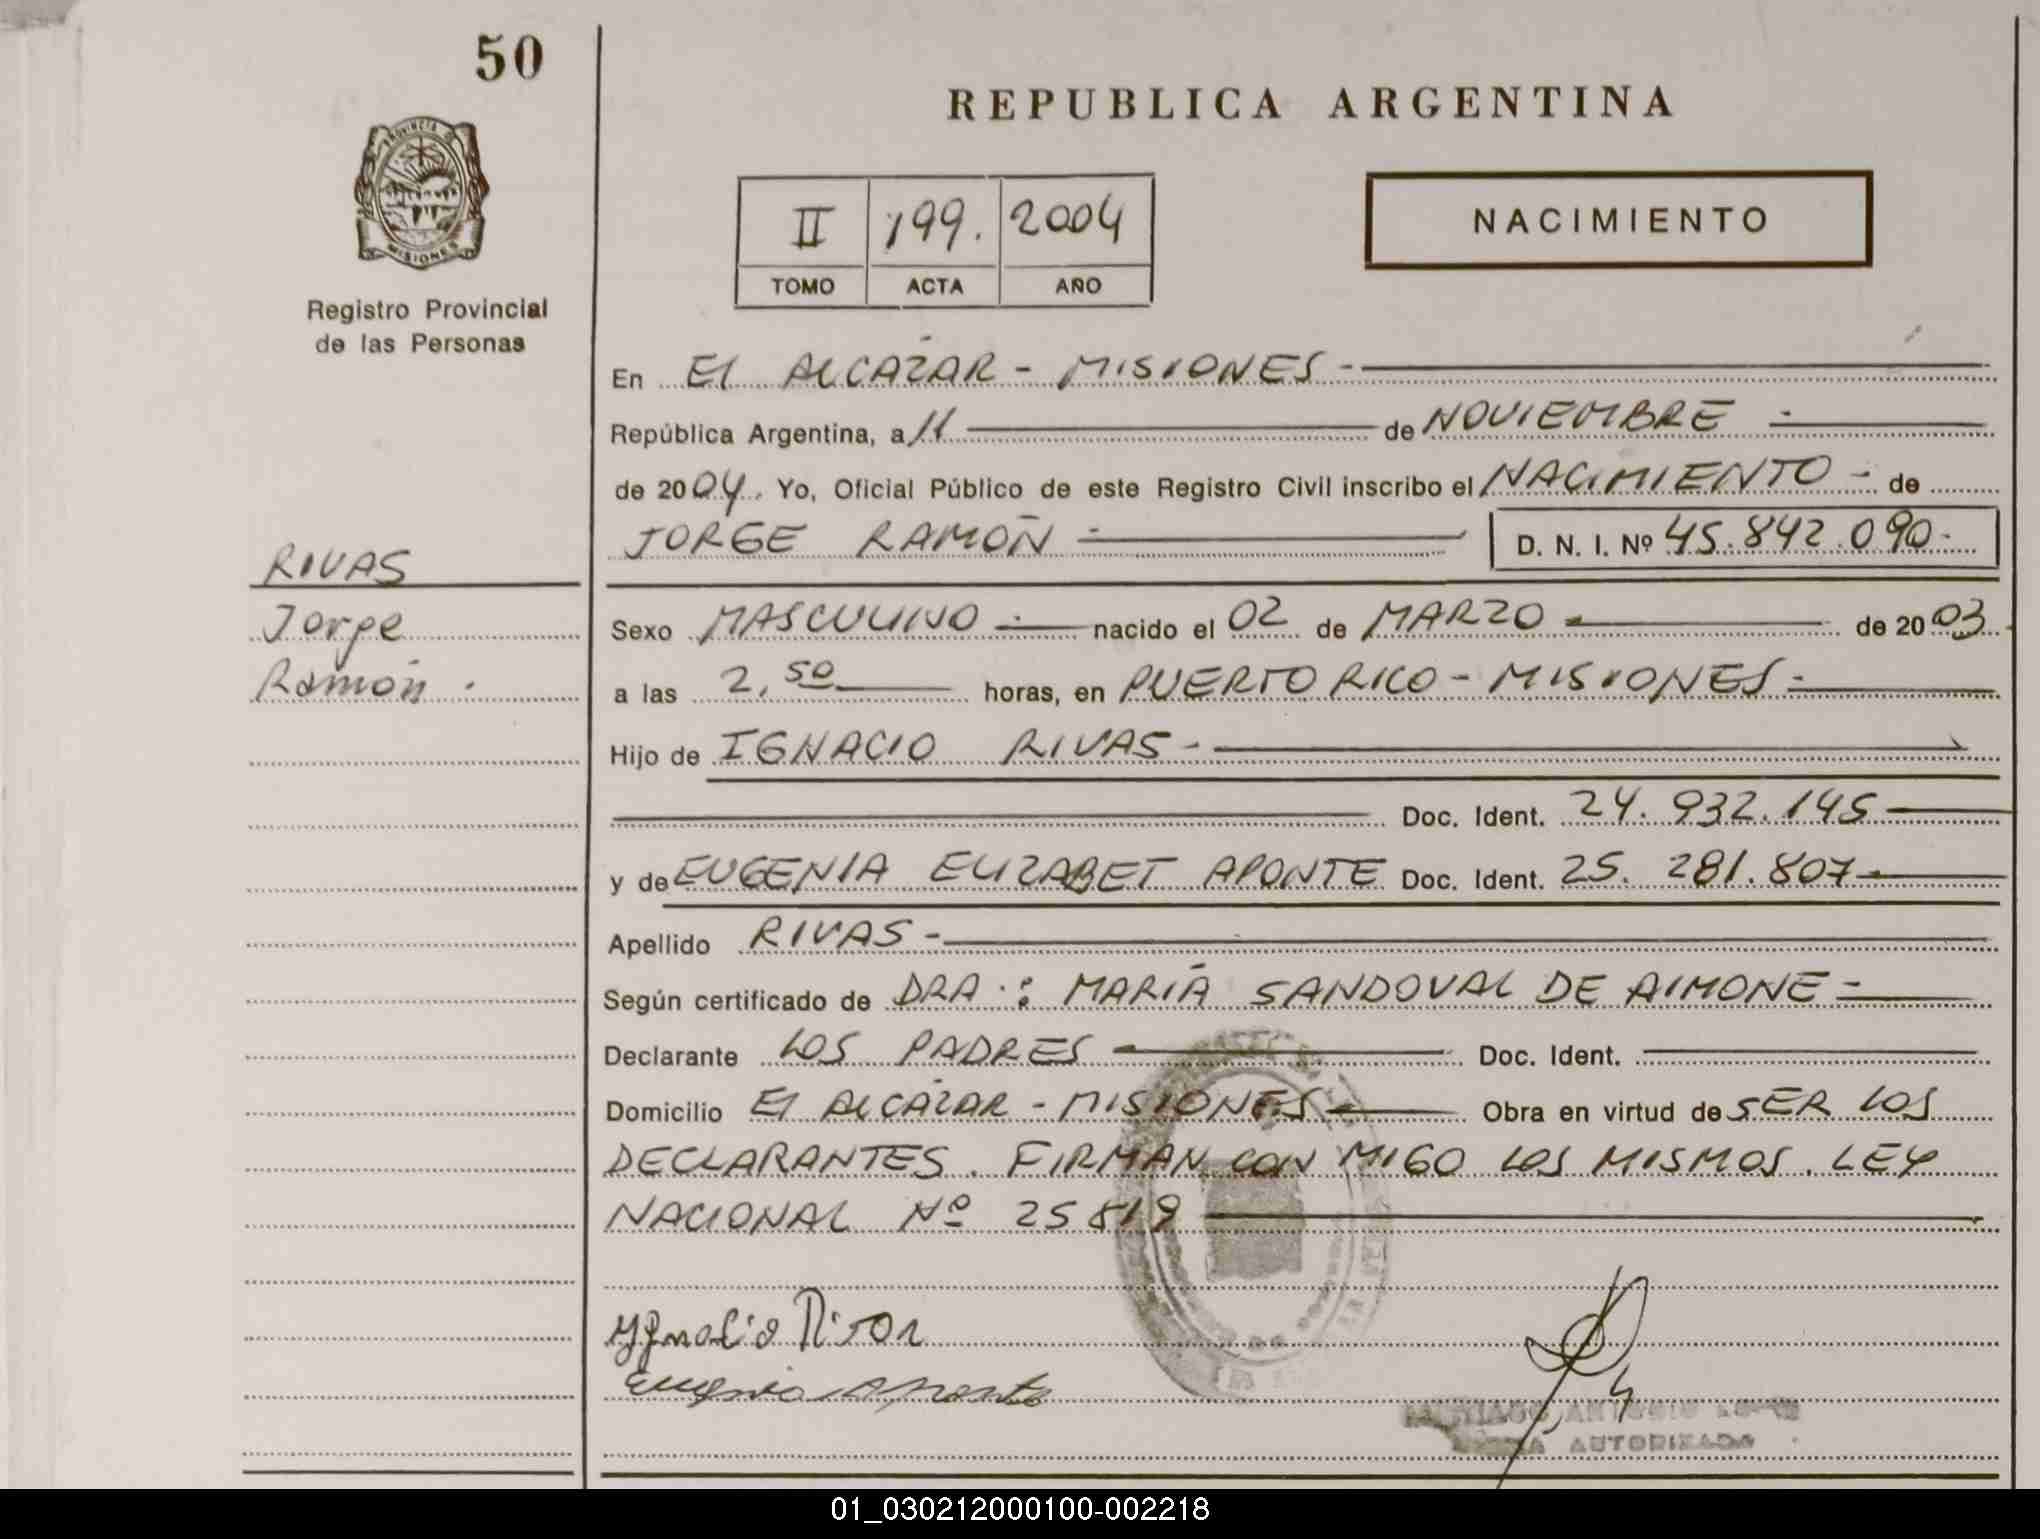 50
REPUBLICA ARGENTINA
PROVINCIA DE
MISIONES
Registro Provincial
de las Personas
II 199. 2004
TOMO ACTA AÑO
NACIMIENTO
En El ALCAZAR - MISIONES -
República Argentina, a 11 de NOVIEMBRE -
de 2004. Yo, Oficial Público de este Registro Civil inscribo el NACIMIENTO - de
JORGE RAMÓN - D. N. I. Nº 45.842.090-
RIVAS
Jorge
Ramón .
Sexo MASCULINO - nacido el 02 de MARZO - de 2003.
a las 2,50 horas, en PUERTO RICO - MISIONES -
Hijo de IGNACIO RIVAS -
Doc. Ident. 24.932.145
y de EUGENIA ELIZABET APONTE Doc. Ident. 25.281.807-
Apellido RIVAS -
Según certificado de DRA.: MARÍA SANDOVAL DE AIMONE -
Declarante LOS PADRES Doc. Ident.
Domicilio El ALCÁZAR - MISIONES - Obra en virtud de SER LOS
DECLARANTES. FIRMAN CON MIGO LOS MISMOS. LEY
NACIONAL Nº 25819
Ygnacio Rivas
Eugenia Aponte
ANTONIO
AUTORIZADA
01_030212000100-002218